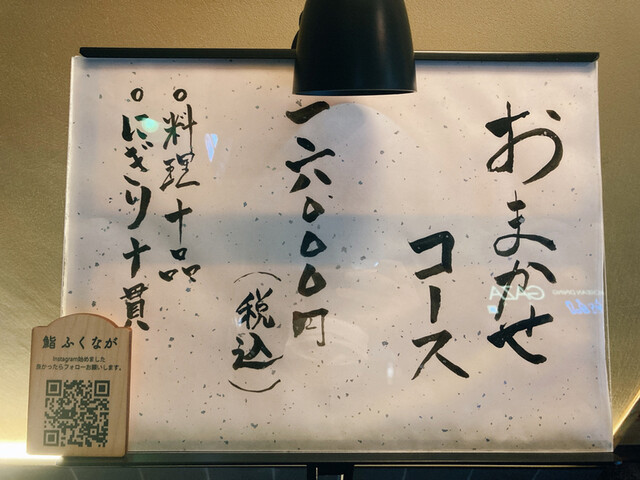 おまかせ
コース
一六〇〇〇円
（税込）
○料理十品
○にぎり十貫
鮨 ふくなが
Instagram始めました
良かったらフォローお願いします。
GAZA